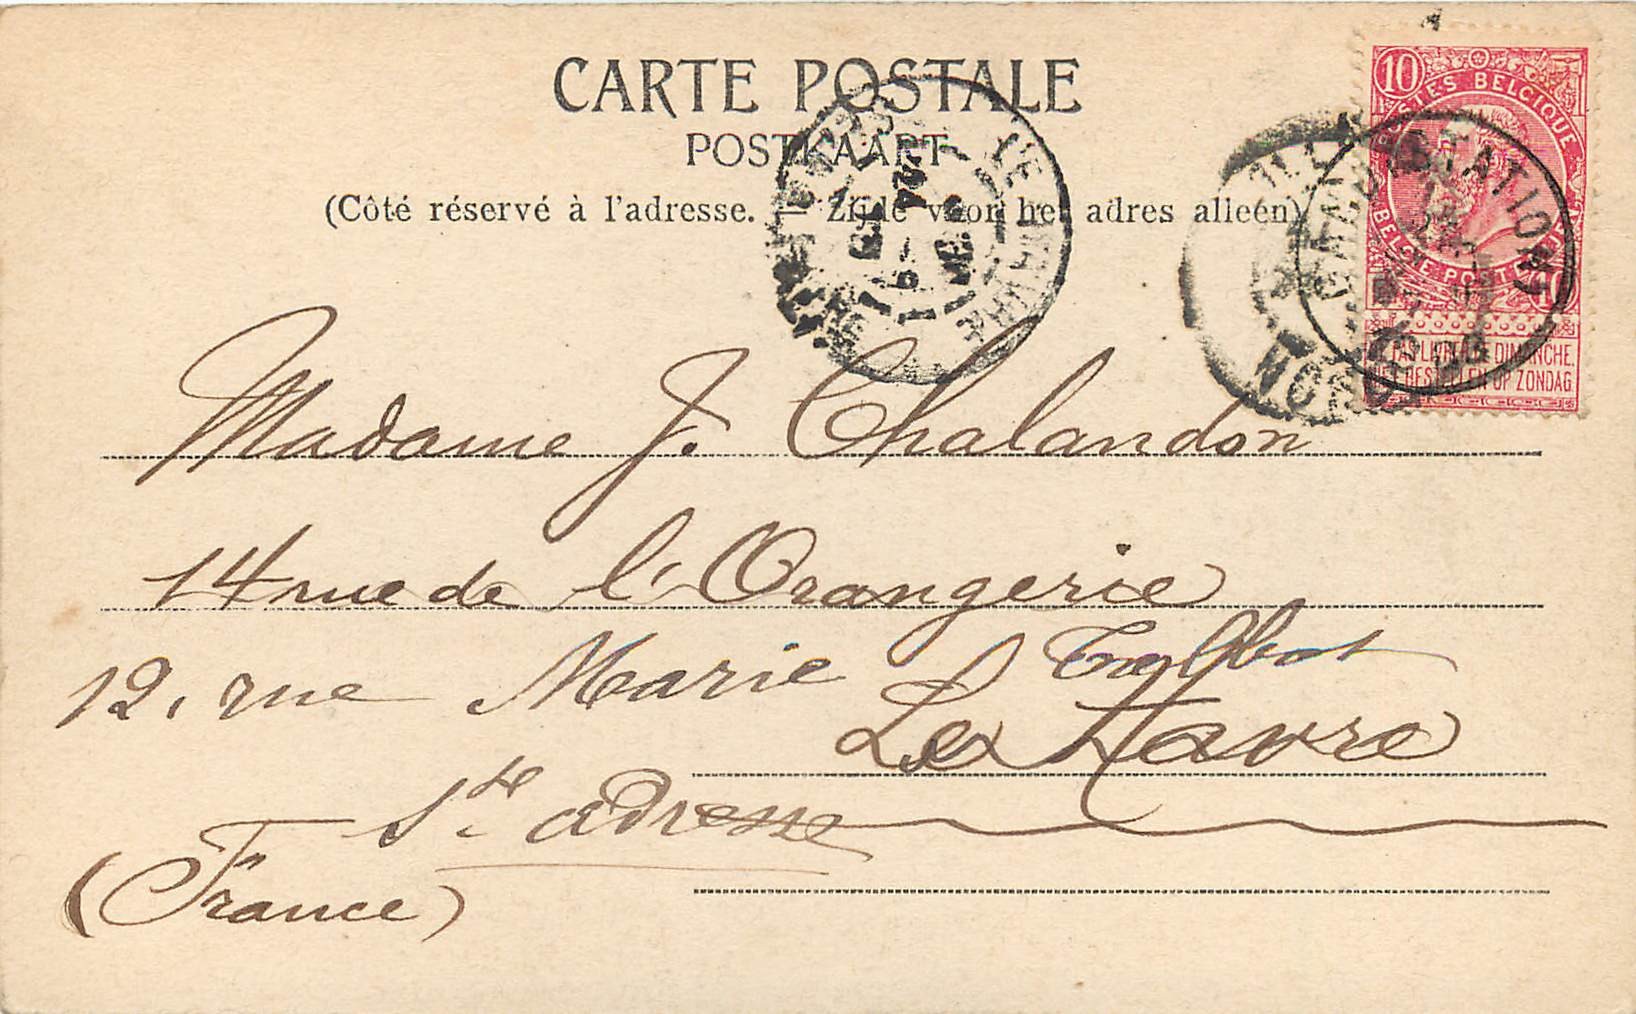 CARTE POSTALE
POSTKAART
(Côté réservé à l'adresse. — Zijde voor het adres alleen)
10
POSTES BELGIQUE
BELGIE POSTERIJEN 10
NE PAS LIVRER LE DIMANCHE.
NIET BESTELLEN OP ZONDAG
(STATION)
LE HAVRE
Madame J. Chalandon
14 rue de l'Orangerie
12, rue Marie Talbot
Le Havre
Ste adresse
(France)